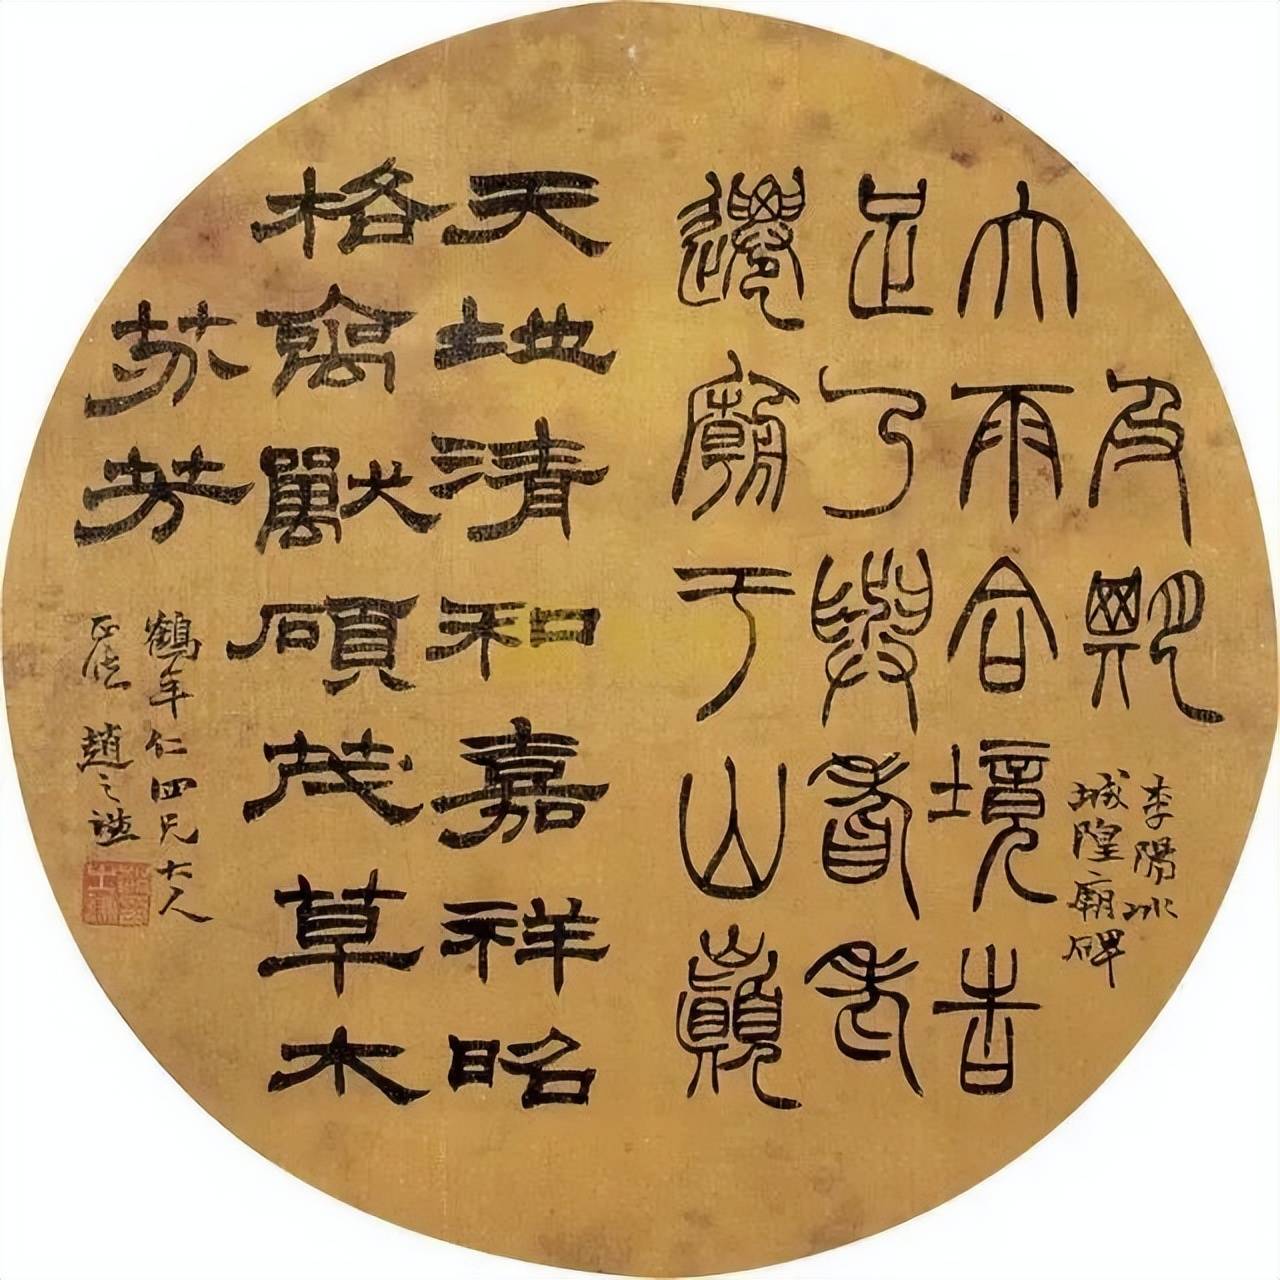 及期
李陽冰
城隍廟碑
大雨合境告
足乃與耆老
遷廟于山巔
天地清和嘉祥昭
格禽獸碩茂草木
芬芳
鶴年仁四兄大人
正 趙之謙